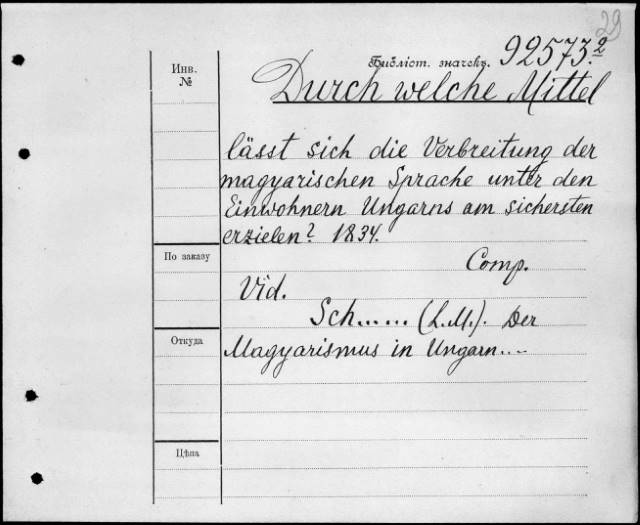 29
Инв.
№
Библіот. значекъ. 92573.2
Durch welche Mittel
lässt sich die Verbreitung der
magyarischen Sprache unter den
Einwohnern Ungarns am sichersten
erzielen? 1834.
По заказу
Comp.
Vid.
Sch...... (L.M.). Der
Откуда
Magyarismus in Ungarn....
Цѣна